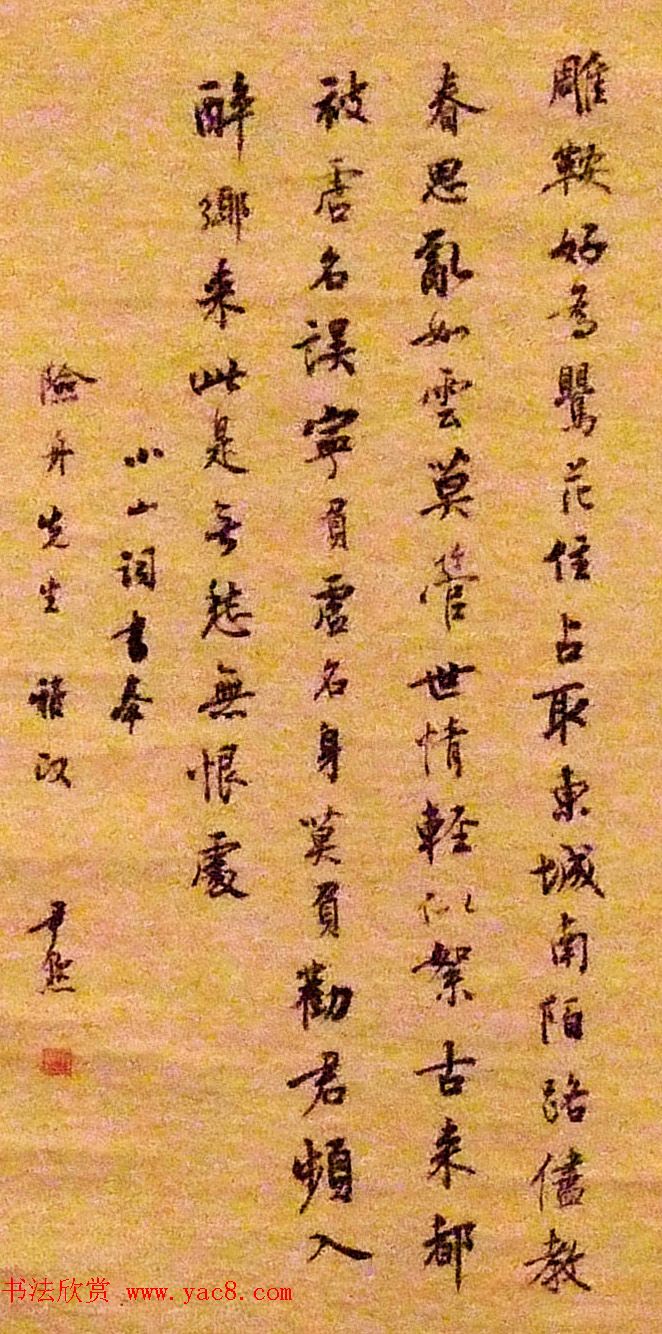 雕鞍好為鸎花住占取東城南陌路儘教
春思亂如雲莫管世情輕似絮古來都
被虛名誤寧負虛名身莫負勸君頻入
醉鄉來此是無愁無恨處
小山詞書奉
險舟先生 政
尹默
书法欣赏 www.yac8.com